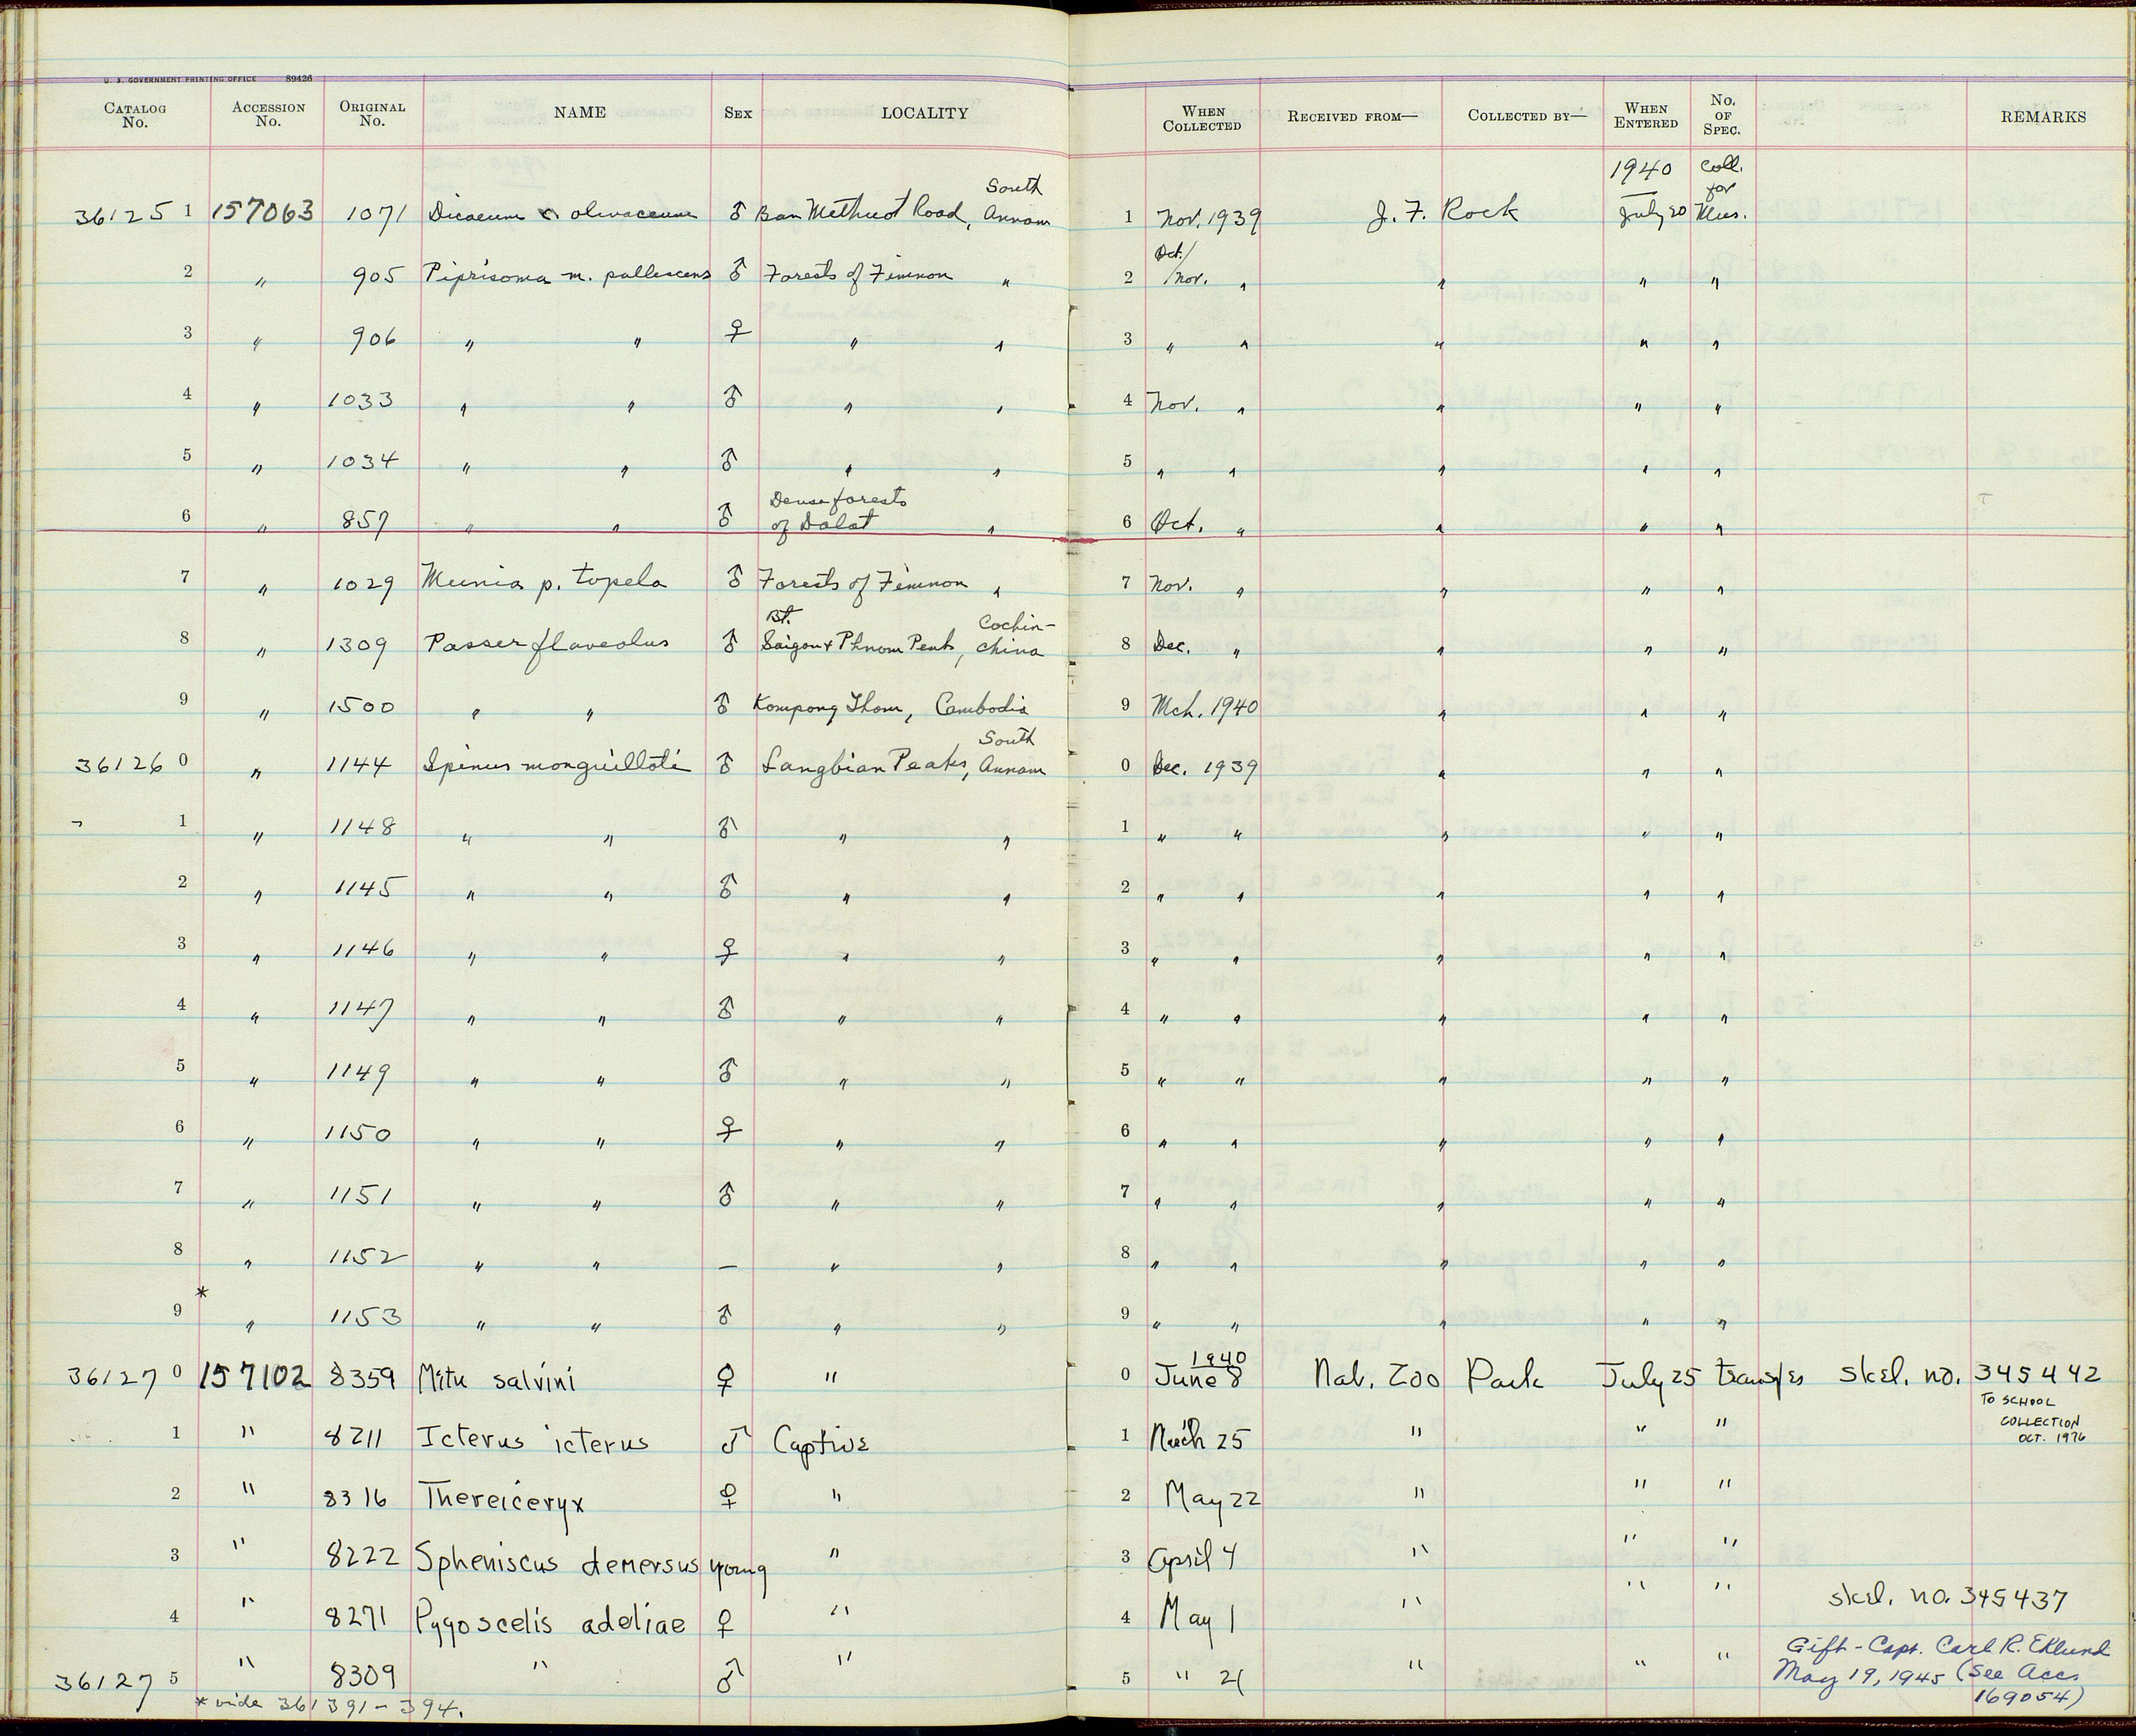 U. S. GOVERNMENT PRINTING OFFICE 89426
CATALOG No. ACCESSION No. ORIGINAL No. NAME SEX LOCALITY WHEN COLLECTED RECEIVED FROM— COLLECTED BY— WHEN ENTERED No. OF SPEC. REMARKS
1940 Coll. for Mus.
36125 1 157063 1071 Dicaeum olivaceum ♂ Ban Methuot Road, South Annam 1 Nov. 1939 J. F. Rock July 20
2 " 905 Piprisoma m. pallescens ♂ Forests of Fimnom " 2 Oct./Nov. " " " "
3 " 906 " " ♀ " " 3 " " " " "
4 " 1033 " " ♂ " " 4 Nov. " " " "
5 " 1034 " " ♂ " " 5 " " " " "
6 " 857 " " ♂ Dense forests of Dalat " 6 Oct. " " " "
7 " 1029 Munia p. topela ♂ Forests of Fimnom " 7 Nov. " " " "
8 " 1309 Passer flaveolus ♂ Bt. Saigon & Phnom Penh, Cochin-china 8 Dec. " " " "
9 " 1500 " " ♂ Kompong Thom, Cambodia 9 Mch. 1940 " " "
36126 0 " 1144 Spinus monguilloti ♂ Langbian Peaks, South Annam 0 Dec. 1939 " " "
1 " 1148 " " ♂ " " 1 " " " " "
2 " 1145 " " ♂ " " 2 " " " " "
3 " 1146 " " ♀ " " 3 " " " " "
4 " 1147 " " ♂ " " 4 " " " " "
5 " 1149 " " ♂ " " 5 " " " " "
6 " 1150 " " ♀ " " 6 " " " " "
7 " 1151 " " ♂ " " 7 " " " " "
8 " 1152 " " — " " 8 " " " " "
9 * " 1153 " " ♂ " " 9 " " " " "
36127 0 157102 8359 Mitu salvini ♀ " 0 June 8 1940 Nat. Zoo Park July 25 transfer skel. no. 345442
TO SCHOOL
COLLECTION
OCT. 1976
1 " 8211 Icterus icterus ♂ Captive 1 March 25 " " "
2 " 8316 Thereiceryx ♀ " 2 May 22 " " "
3 " 8222 Spheniscus demersus young " 3 April 4 " " "
4 " 8271 Pygoscelis adeliae ♀ " 4 May 1 " " " skel. no. 345437
36127 5 " 8309 " ♂ " 5 " 21 " " " Gift - Capt. Carl R. Eklund
May 19, 1945 (See Accs
169054)
* vide 361391 - 394.